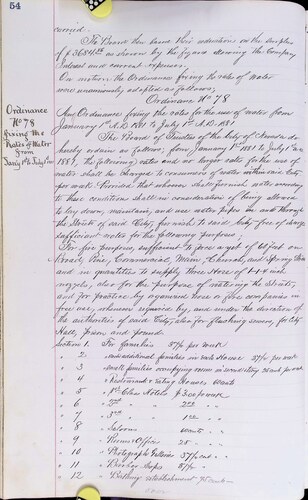 54
carried.
The Board then turned their attention to the surplus
of $3684.00 as shown by the figures showing the Company
Interest and current expenses.
On motion the Ordinance fixing the rates of water
were unanimously adopted as follows;
Ordinance No 78
Ordinance
No 78
fixing the
Rates of Water
from
Jany 1st to July 1st
An Ordinance fixing the rates for the use of water from
January 1st A.D. 1881 to July 1st A.D. 1881.
The Board of Trustees of the City of Nevada do
hereby ordain as follows; from January 1st 1881 to July 1st A.D.
1881, the following rates and no larger rates for the use of
water shall be charged to consumers of water within said City
per week. Provided that whoever shall furnish water according
to these conditions shall in consideration of being allowed
to lay down, maintain, and use water pipes in and through
the Streets of said City, furnish to said City free of charge
sufficient water for the following purposes;
For fire purposes sufficient to force a jet of feet on
Broad, Pine, Commercial, Main, Church, and Spring Streets
and in quantities to supply three Hose of inch
nozzle, also for the purpose of wetting the Streets,
and for practice by agreement hose or fire companies in
fire use, whenever required by, and under the direction of
the authorities of said City, also for flushing sewers, for City
Hall, Prison and pound.
Section 1. For families 37½ per week
" 2. additional families in each House 37½ per week
" 3. small families occupying room in 25 per week
" 4 Restaurants & Eating Houses
" 5 1st Class Hotels $3.00 per week
" 6 2nd " 2.00 "
" 7 3rd "
" 8 Saloons
" 9 Offices 25 "
" 10 Photograph Galleries 37½ "
" 11 Barber Shops 37½ "
" 12 Bathing establishment